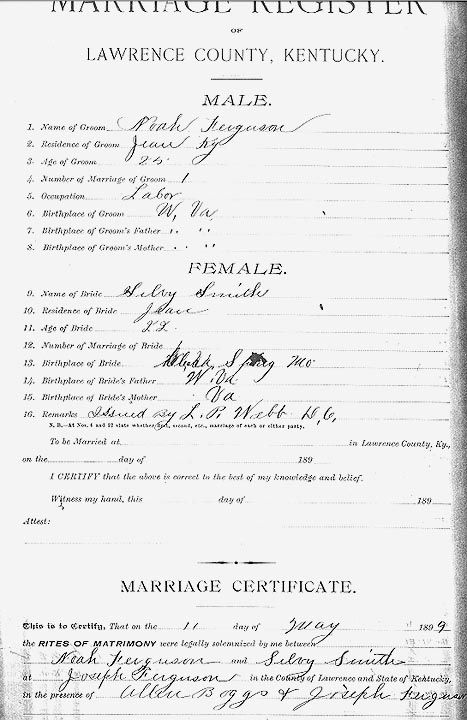 MARRIAGE REGISTER
OF
LAWRENCE COUNTY, KENTUCKY.
MALE.
1. Name of Groom Noah Ferguson
2. Residence of Groom Jean Ky
3. Age of Groom 25
4. Number of Marriage of Groom 1
5. Occupation Labor
6. Birthplace of Groom W, Va
7. Birthplace of Groom's Father " "
8. Birthplace of Groom's Mother " "
FEMALE.
9. Name of Bride Silvy Smith
10. Residence of Bride Jean
11. Age of Bride 22
12. Number of Marriage of Bride
13. Birthplace of Bride Mo
14. Birthplace of Bride's Father W. Va
15. Birthplace of Bride's Mother Va
16. Remarks Issued by L. R. Webb D, C,
N. B.—At Nos. 4 and 12 state whether first, second, etc., marriage of each or either party.
To be Married at in Lawrence County, Ky.,
on the day of 189
I CERTIFY that the above is correct to the best of my knowledge and belief.
Witness my hand, this day of 189
Attest:
MARRIAGE CERTIFICATE.
This is to Certify, That on the 11 day of May 1899
the RITES OF MATRIMONY were legally solemnized by me between
Noah Ferguson and Silvy Smith
at Joseph Ferguson in the County of Lawrence and State of Kentucky,
in the presence of Allen Boggs & Joseph Ferguson